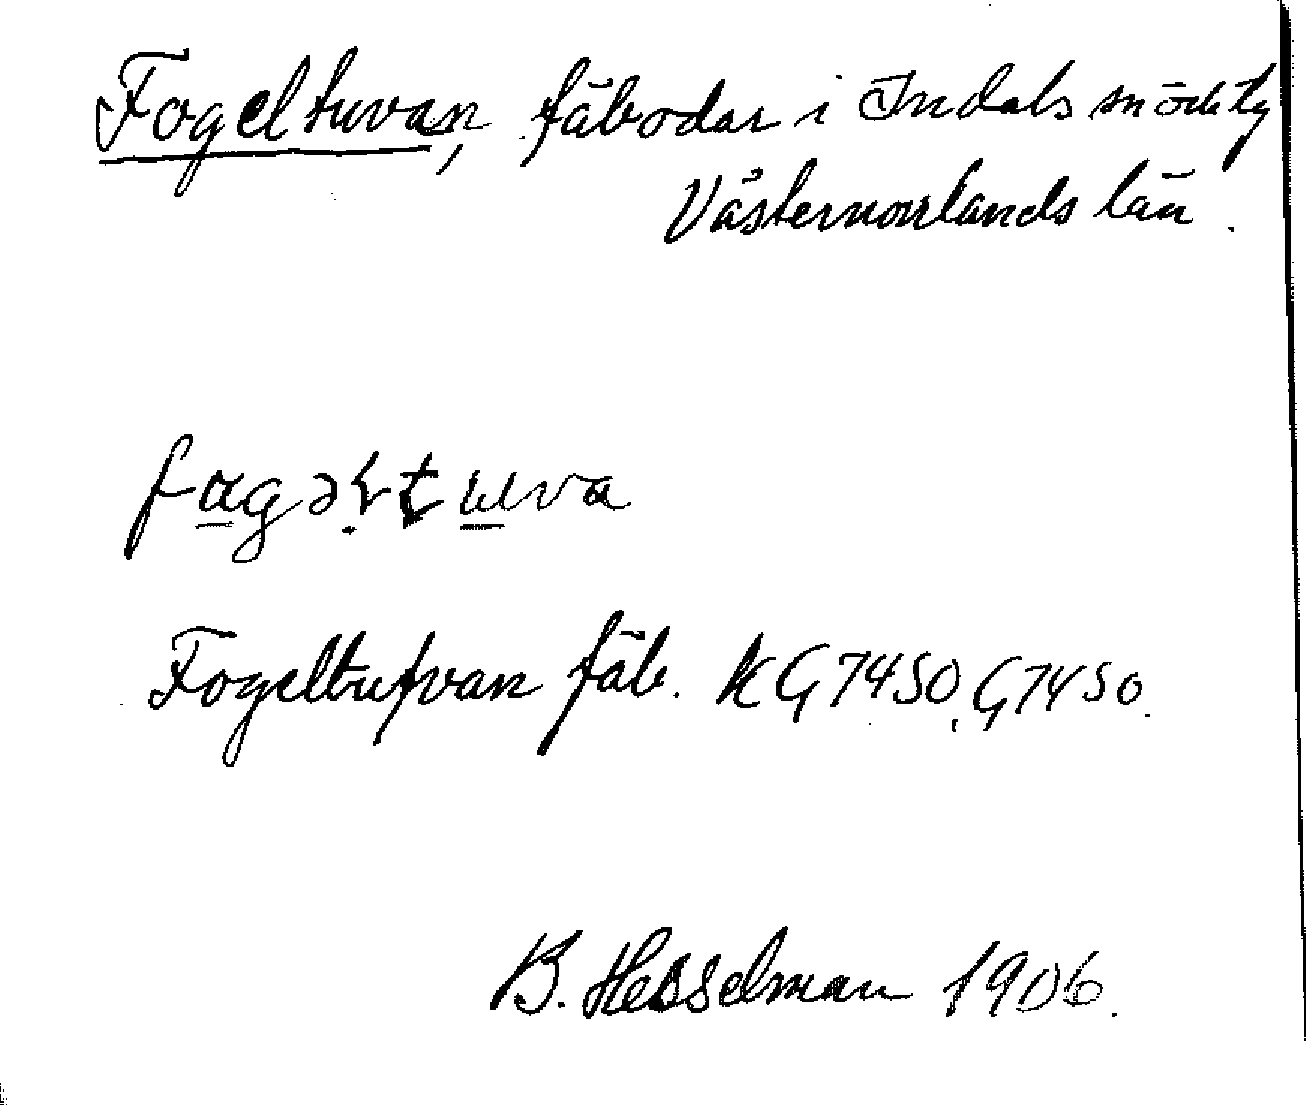 Fogeltuvan, fäbodar i Indals sn ö. del. tg
Västernorrlands län.
fagəļtuva
Fogeltufvan fäb. KG7450, G7450.
B. Hesselman 1906.